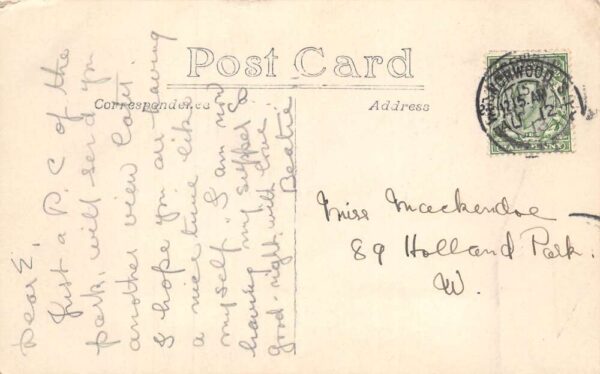 Post Card
Correspondence
Address
NORWOOD
12.15 AM
12
Dear E,
Just a P. C of the
park, will send you
another view later.
I hope you are having
a nice time like
myself. I am now
having my supper so
good-night with love
Beatie.
Miss Mackendoe
89 Holland Park.
W.